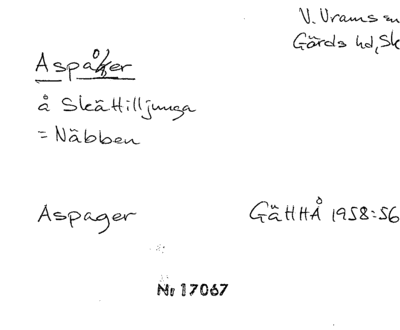 V. Vrams sn
Gärds hd, Sk
Aspåker
å Skättilljunga
= Näbben
Aspager GäHHÅ 1958:56
Nr 17067